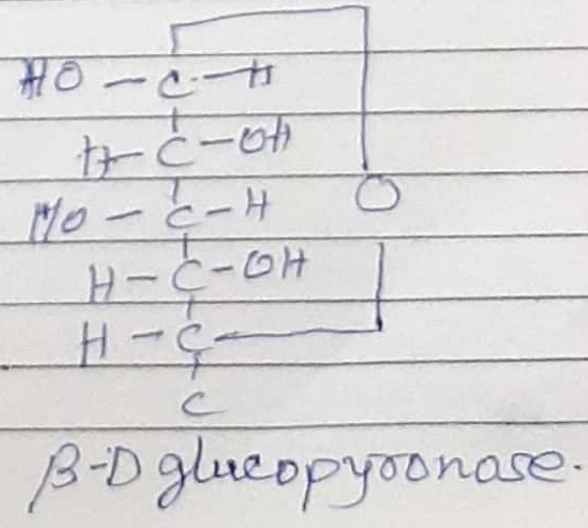 HO - C - H
H - C - OH
HO - C - H
O
H - C - OH
H - C
C
β-D glucopyronase.